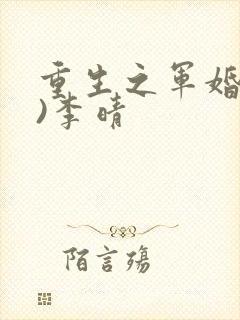 重生之军婚
)李晴
陌言殇